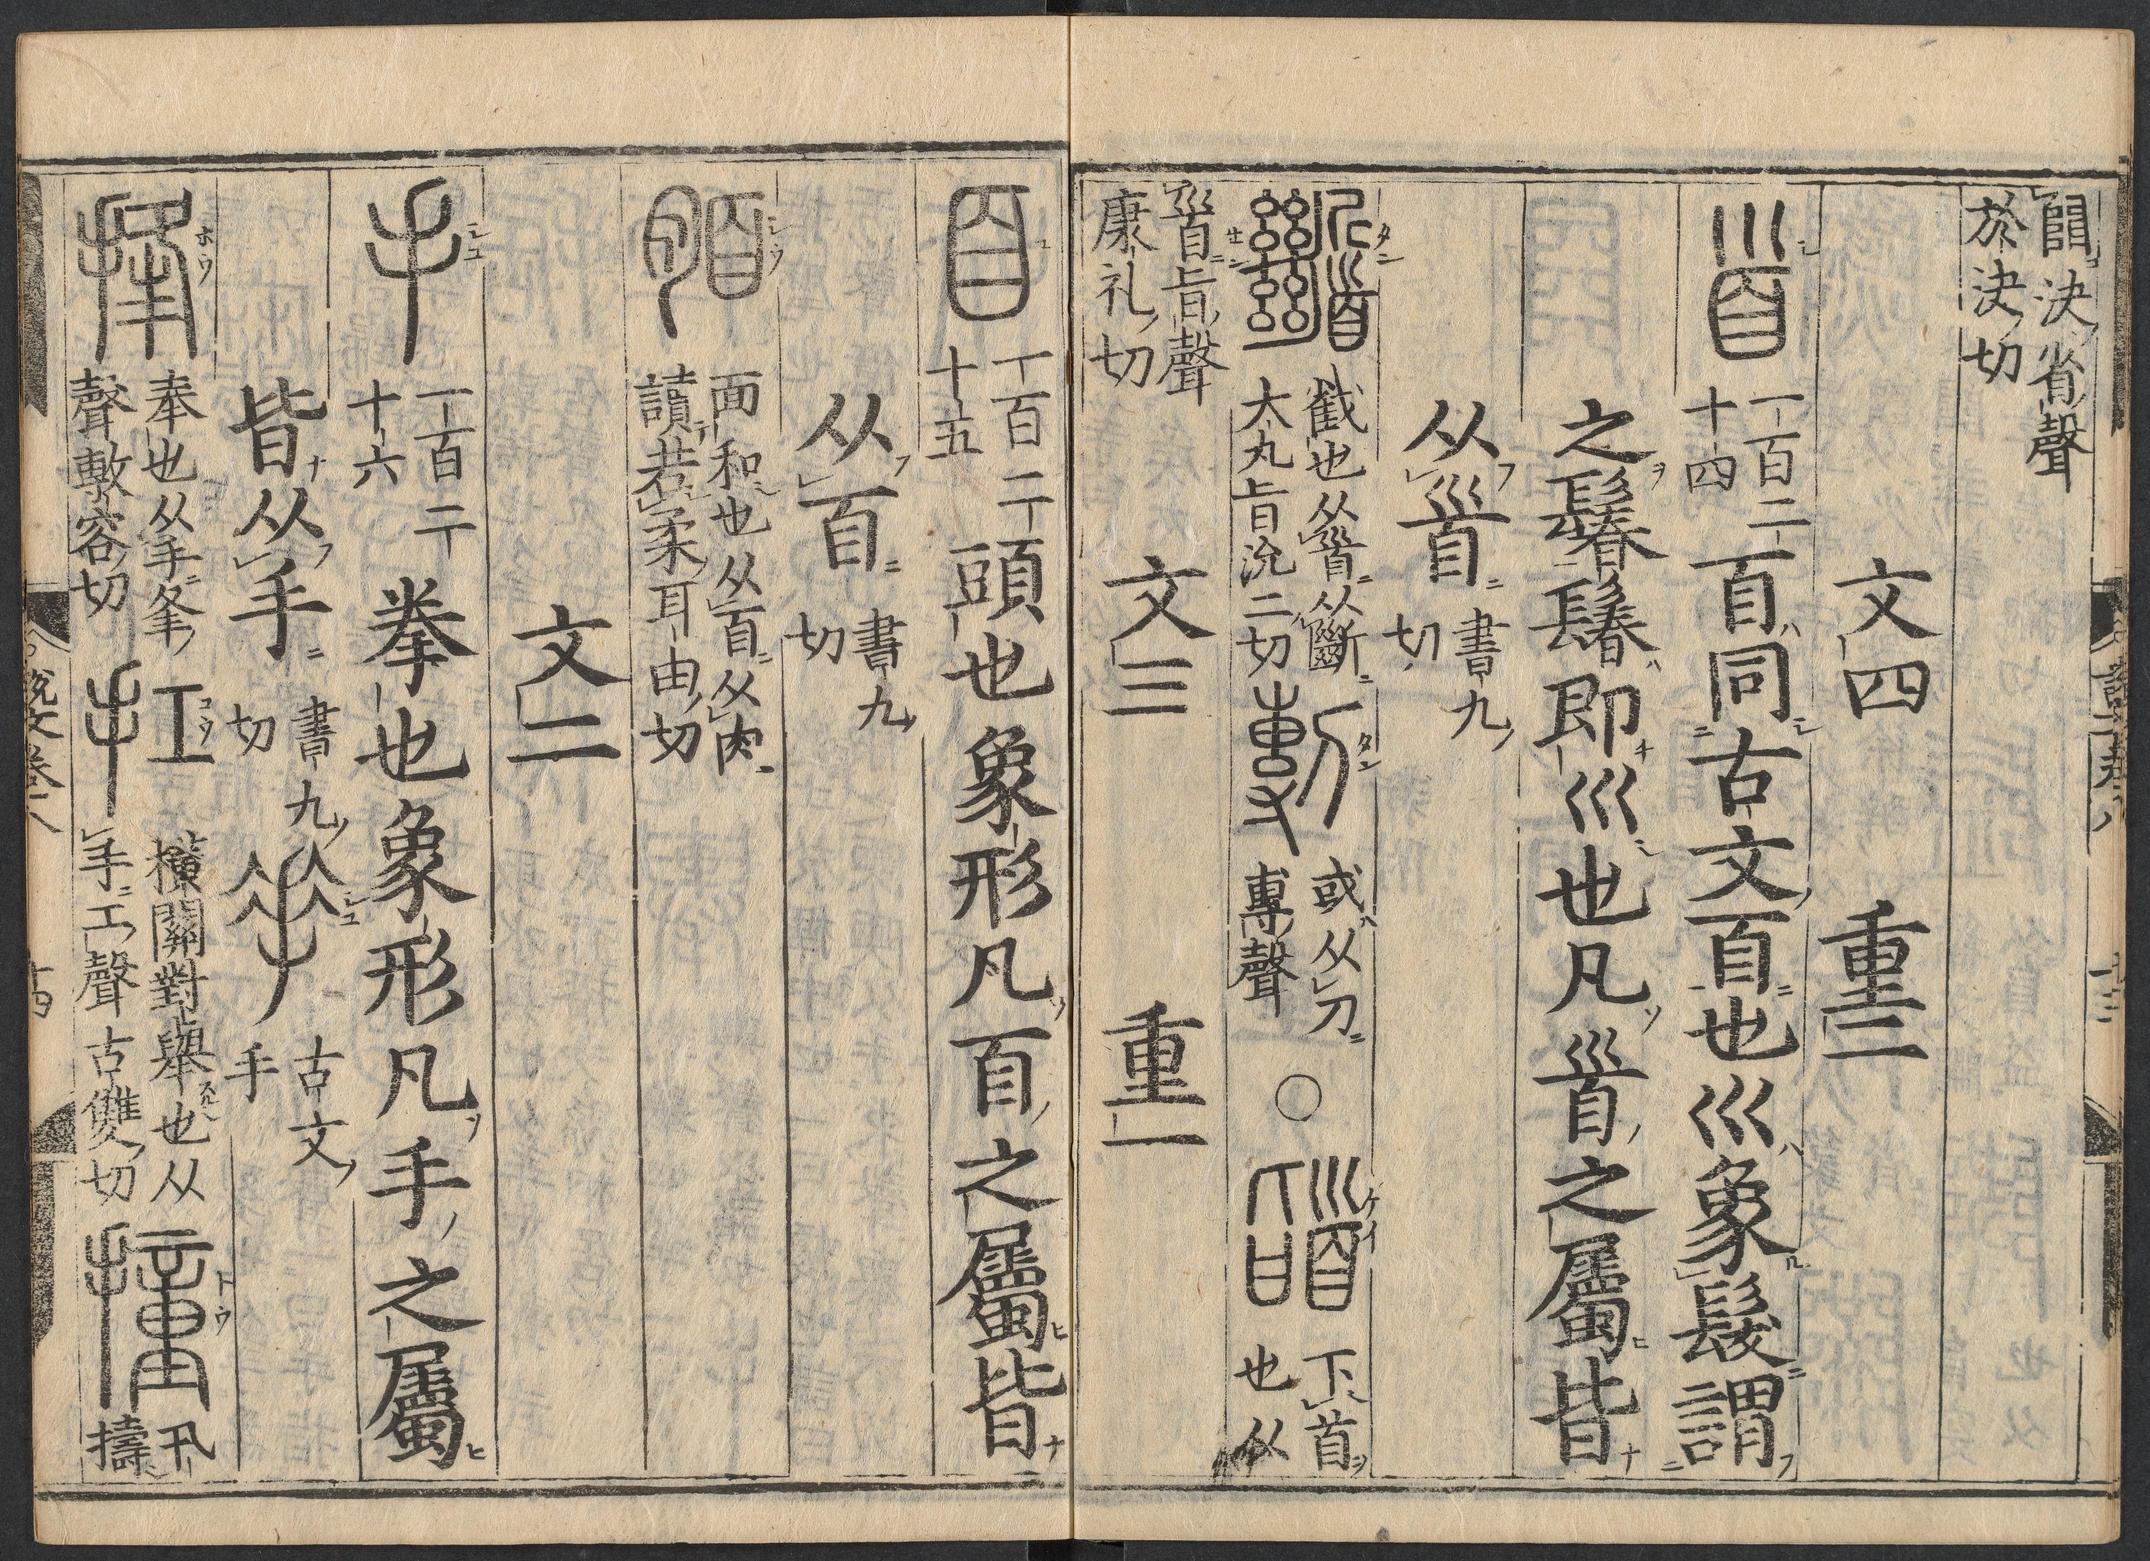 決省聲
於決切
文四 重二
𩠐 一百二十四 𦣻同古文𦣻也巛象髮謂
之鬊鬊即巛也凡𩠐之屬皆
从𩠐 書九切
截也从𩠐从斷大丸旨沇二切 剸 或从刀專聲 ○ 䭫 下首也从
𩠐旨聲康礼切
文三 重一
說文卷八 十三
𦣻 一百二十五 頭也象形凡𦣻之屬皆
从𦣻 書九切
脜 面和也从𦣻从肉讀若柔耳由切
文二
手 一百二十六 拳也象形凡手之屬
皆从手 書九切 古文手
捀 奉也从手夆聲敷容切 扛 橫關對舉也从手工聲古雙切 撞 卂擣
說文卷八 十四